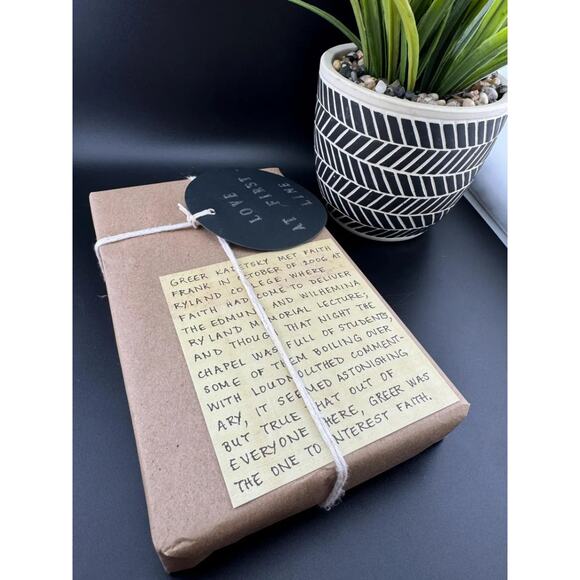 LOVE
AT FIRST
LINE
GREER KADETSKY MET FAITH
FRANK IN OCTOBER OF 2006 AT
RYLAND COLLEGE, WHERE
FAITH HAD COME TO DELIVER
THE EDMUND AND WILHEMINA
RYLAND MEMORIAL LECTURE;
AND THOUGH THAT NIGHT THE
CHAPEL WAS FULL OF STUDENTS,
SOME OF THEM BOILING OVER
WITH LOUDMOUTHED COMMENT-
ARY, IT SEEMED ASTONISHING
BUT TRUE THAT OUT OF
EVERYONE THERE, GREER WAS
THE ONE TO INTEREST FAITH.